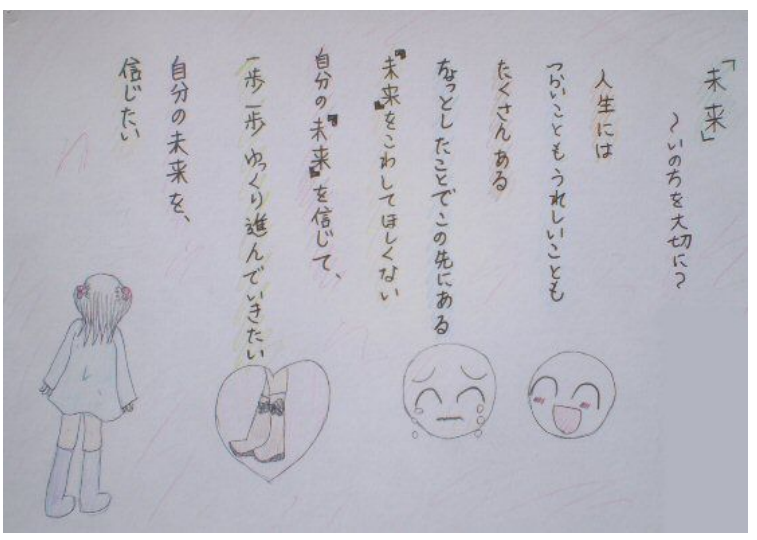 「未来」
～いのちを大切に～
人生には
つらいこともうれしいことも
たくさんある
ちょっとしたことでこの先にある
『未来』をこわしてほしくない
自分の『未来』を信じて、
一歩一歩ゆっくり進んでいきたい
自分の未来を、
信じたい